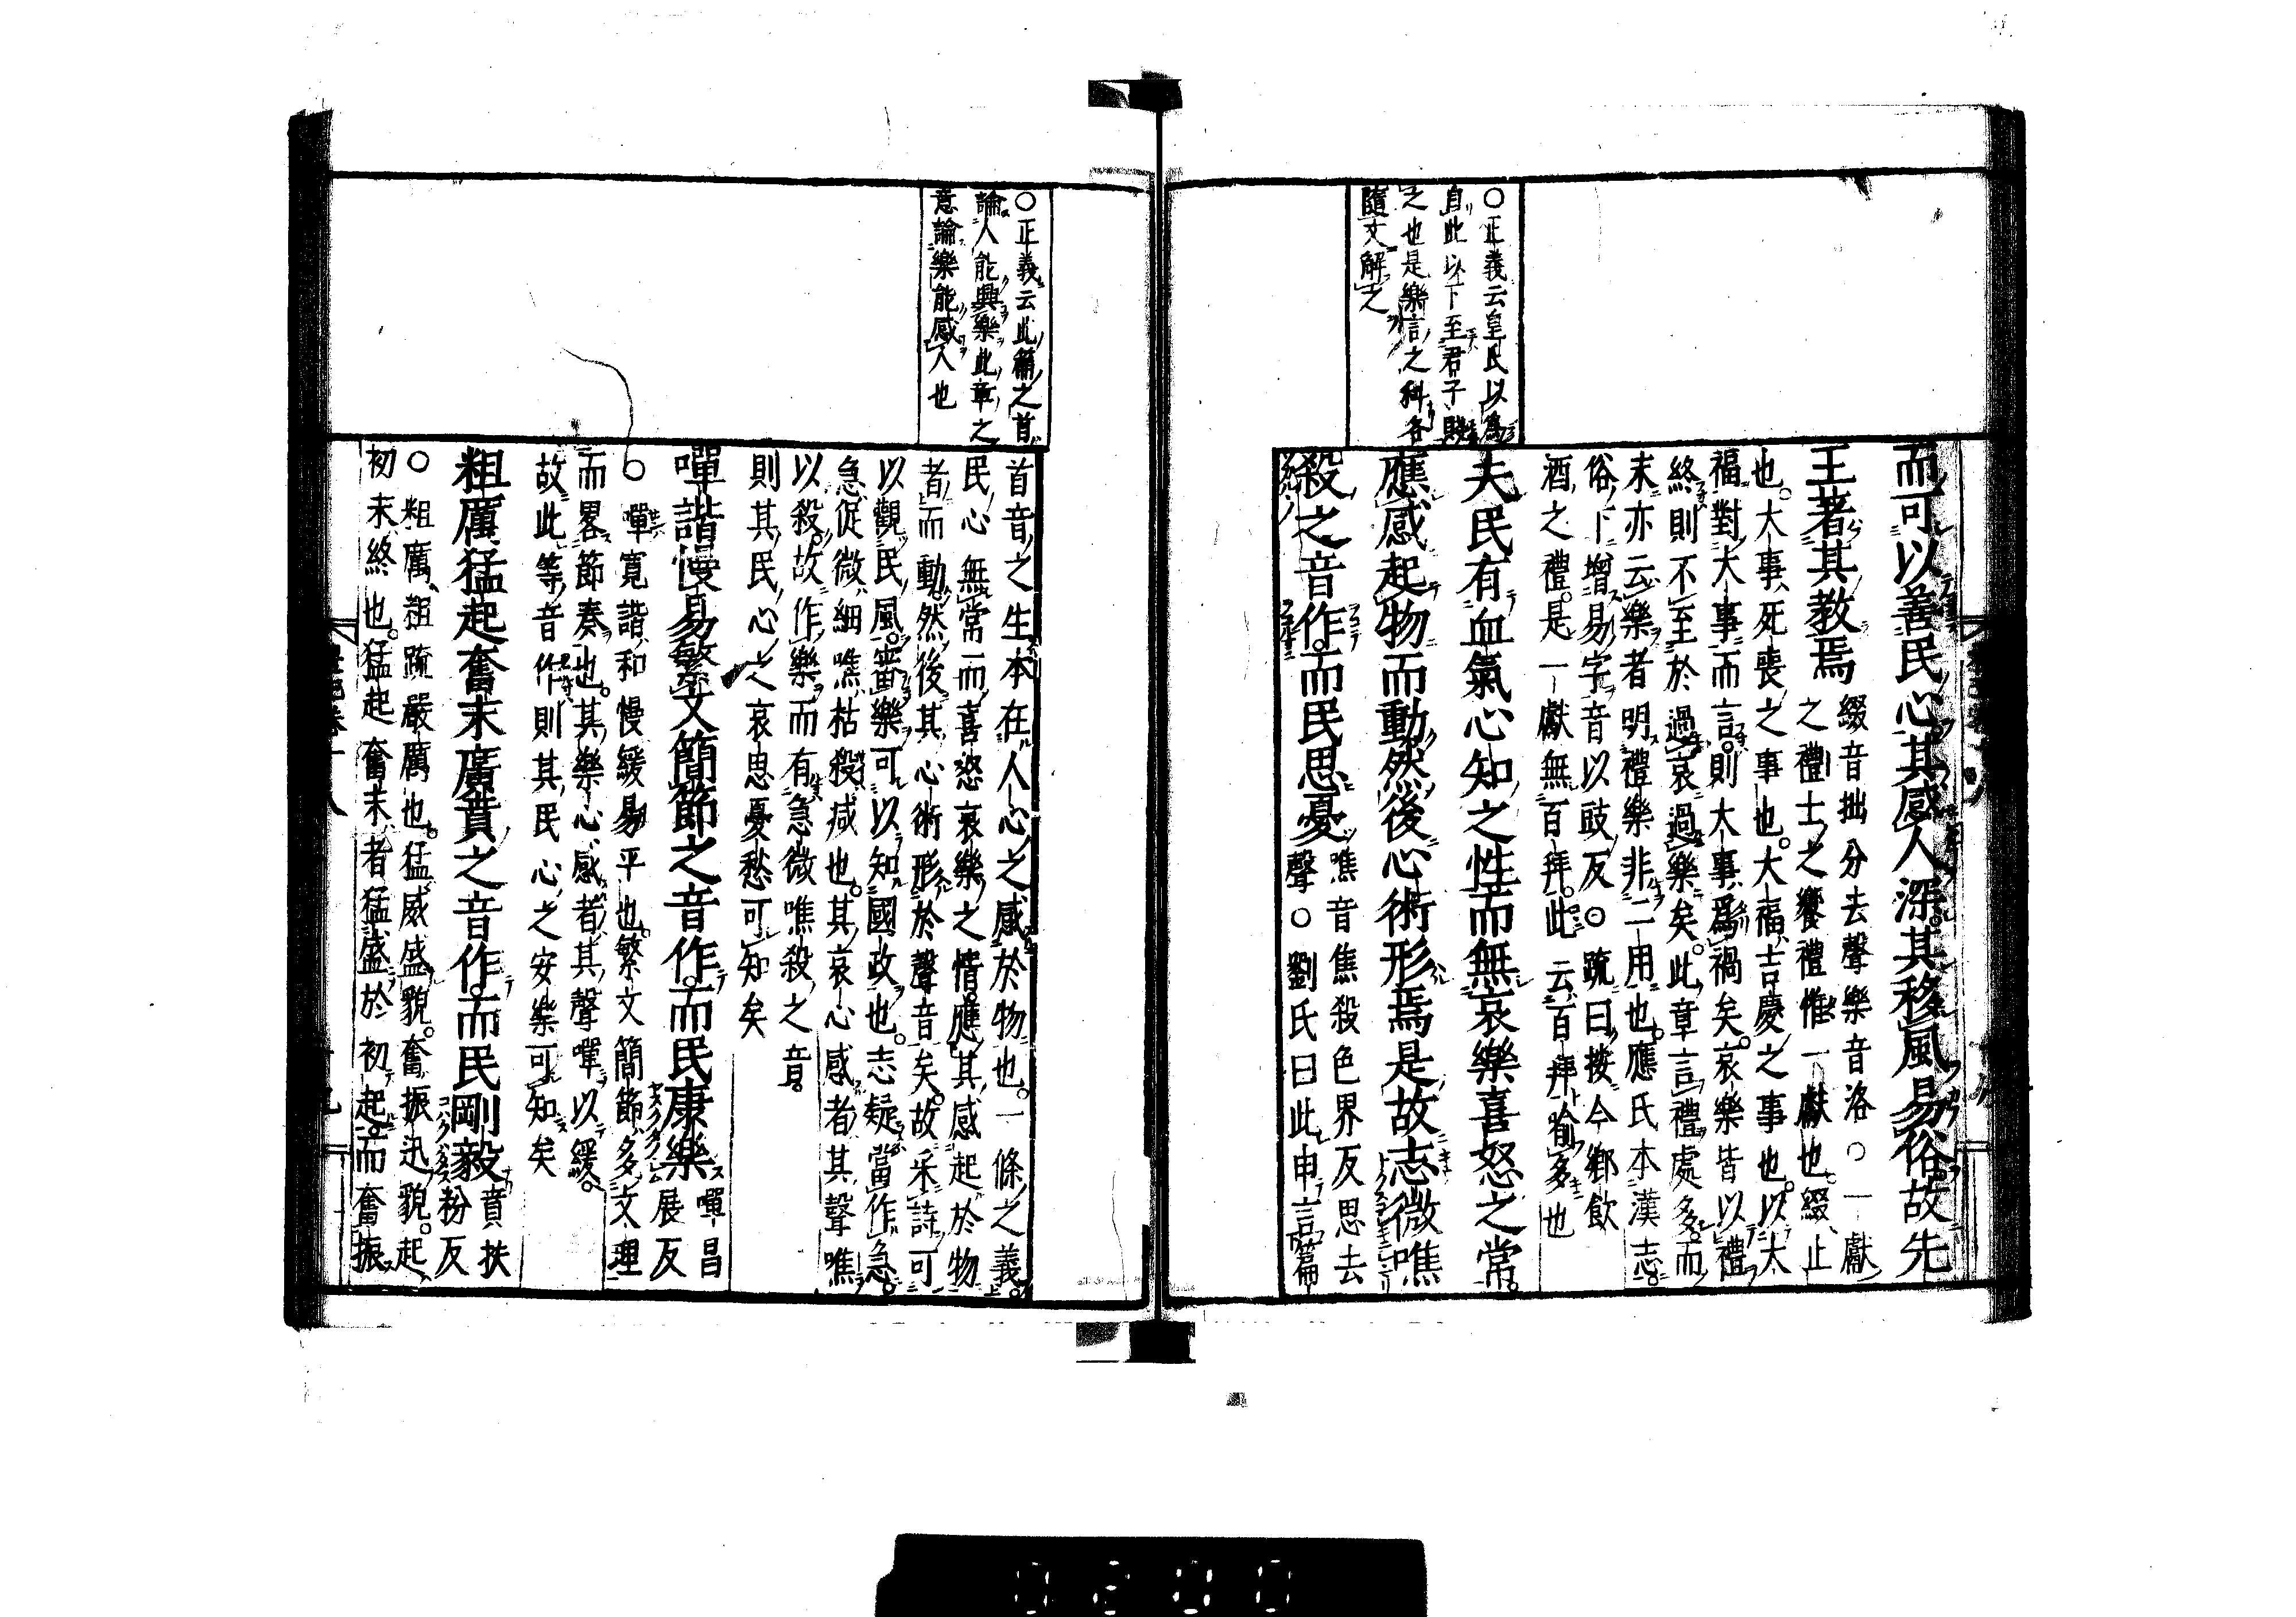 ○正義云皇氏以爲
自此以下至君子賤
之也是樂言之科各
隨文解之
而可以善民心其感人深其移風易俗故先
王著其教焉
綴音拙分去聲樂音洛○一獻
之禮士之饗禮惟一獻也綴止
也大事死喪之事也大福吉慶之事也以大
福對大事而言則大事爲禍矣哀樂皆以禮
終則不至於過哀過樂矣此章言禮處多而
末亦云樂者明禮樂非二用也應氏本漢志
俗下增易字音以豉反○疏曰按今鄉飲
酒之禮是一獻無百拜此云百拜喻多也
夫民有血氣心知之性而無哀樂喜怒之常
應感起物而動然後心術形焉是故志微噍
殺之音作而民思憂
噍音焦殺色界反思去
聲○劉氏曰此申言篇
○正義云此篇之首
論人能興樂此章之
意論樂能感人也
首音之生本在人心之感於物也一條之義
民心無常而喜怒哀樂之情應其感起於物
者而動然後其心術形於聲音矣故采詩可
以觀民風審樂可以知國政也志疑當作急
急促微細噍枯殺減也其哀心感者其聲噍
以殺故作樂而有急微噍殺之音
則其民心之哀思憂愁可知矣
嘽諧慢易繁文簡節之音作而民康樂
嘽昌
展反
○嘽寬諧和慢緩易平也繁文簡節多文理
而畧節奏也其樂心感者其聲嘽以緩
故此等音作則其民心之安樂可知矣
粗厲猛起奮末廣賁之音作而民剛毅
賁扶
粉反
○粗厲粗疏嚴厲也猛威盛貌奮振迅貌起
初末終也猛起奮末者猛盛於初起而奮振